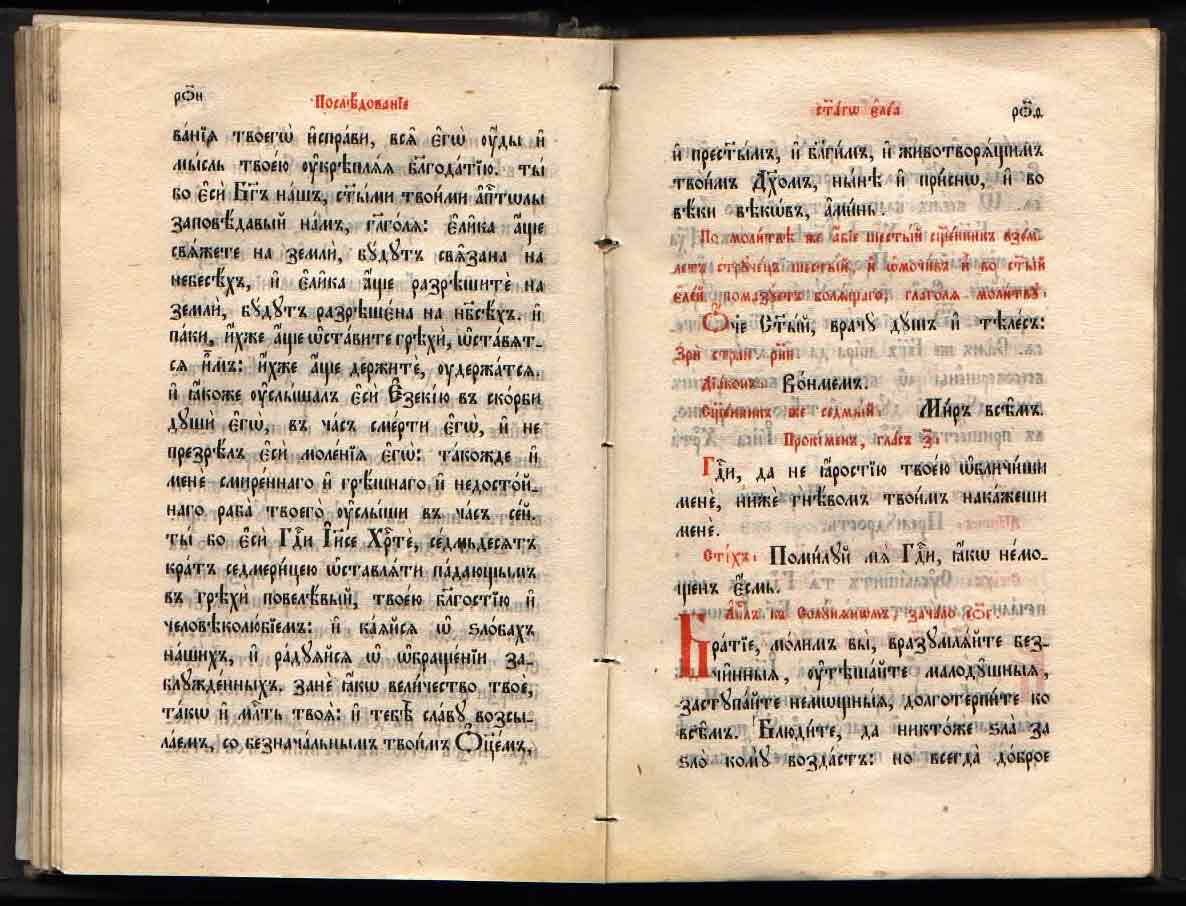 рѻ҃и
Послѣ́дованїе
ва́нїѧ твоегѡ̀ и҆спра́ви, всѧ̑ є҆гѡ̀ ᲂу҆́ды и҆
мы́сль твое́ю ᲂу҆крѣплѧ́ѧ бл҃года́тїю. ты́
бо є҆сѝ Бг҃ъ на́шъ, ст҃ы́ми твои́ми а҆пⷭ҇толы
заповѣ́давый на́мъ, гл҃аго́лѧ: є҆ли̑ка а҆́ще
свѧ́жете на землѝ, бꙋ́дꙋтъ свѧ̑зана на
небесѣ́хъ, и҆ є҆ли̑ка а҆́ще разрѣшитѐ на
землѝ, бꙋ́дꙋтъ разрѣшє́на на нб҃сѣ́хъ. и҆
па́ки, и҆̀хже а҆́ще ѡ҆ста́вите грѣхѝ, ѡ҆ста́вѧт_
сѧ и҆̀мъ: и҆̀хже а҆́ще держитѐ, ᲂудержа́тсѧ.
и҆ ꙗ҆́коже ᲂу҆слы́шалъ є҆сѝ Є҆зекі́ю въ ско́рби
дꙋшѝ є҆гѡ̀, въ ча́съ сме́рти є҆гѡ̀, и҆ не
презрѣ́лъ є҆сѝ моле́нїѧ є҆гѡ̀: та́кожде и҆
менѐ смире́ннаго и҆ грѣ́шнаго и҆ недосто́й_
наго раба̀ твоего̀ ᲂу҆слы́ши въ ча́съ се́й.
ты́ бо є҆сѝ Гдⷭ҇и І҆и҃се Хрⷭ҇тѐ, седмьдесѧ́тъ
кра́тъ седмери́цею ѡ҆ставлѧ́ти па́дающымъ
въ грѣхѝ повелѣ́вый, твое́ю бл҃гостїю и҆
человѣколю́бїемъ: и҆ ка́ѧйсѧ ѡ҆ ѕло́бахъ
на́шихъ, и҆ ра́дꙋѧйсѧ ѡ҆ ѡ҆браще́нїи за_
блꙋжде́нныхъ. занѐ ꙗ҆́кѡ вели́чество твоѐ,
та́кѡ и҆ млⷭ҇ть твоѧ̀: и҆ тебѣ̀ сла́вꙋ возсы_
ла́емъ, со безнача́льнымъ твои́мъ Ѻ҆ц҃е́мъ,
ст҃а́гѡ є҆ле́а
рѻ҃ѳ.
и҆ прест҃ы́мъ, и҆ бл҃ги́мъ, и҆ животворѧ́щимъ
твои́мъ Дх҃омъ, ны́нѣ и҆ при́снѡ, и҆ во
вѣ́ки вѣкѡ́въ, а҆ми́нь.
По моли́твѣ же а҆́бїе шесты́й сщ҃е́нникъ взе́м_
летъ стрꙋче́цъ шесты́й, и҆ ѡ҆мочи́въ и҆̀ во ст҃ы́й
є҆ле́й, помазꙋ́етъ болѧ́щаго, глаго́лѧ моли́твꙋ.
Ѻ҆́ч҃е Ст҃ы́й, врачꙋ̀ дꙋ́шъ и҆ тѣле́съ:
Зрѝ стран. рн҃и
Дїа́конъ: Во́нмемъ.
Сщ҃е́нникъ же седмы́й: Ми́ръ всѣ́мъ.
Прокі́менъ, гла́съ з҃.
Гдⷭ҇и, да не ꙗ҆́ростїю твое́ю ѡ҆бличи́ши
менѐ, нижѐ гнѣ́вомъ твои́мъ нака́жеши
менѐ.
Сті́хъ: Поми́лꙋй мѧ̀ Гдⷭ҇и, ꙗ҆́кѡ не́мо_
щенъ є҆́смь.
А҆пⷭ҇лъ къ Солꙋ́нѧнѡмъ, зача́ло со҃г.
Бра́тїе, мо́лимъ вы̀, вразꙋмлѧ́йте без_
чи̑нныѧ, ᲂу҆тѣша́йте малодꙋ̑шныѧ,
застꙋпа́йте немощны̑ѧ, долготерпи́те ко
всѣ̑мъ. Блюди́те, да никто́же ѕла̀ за
ѕло̀ комꙋ̀ возда́стъ: но всегда̀ до́брое